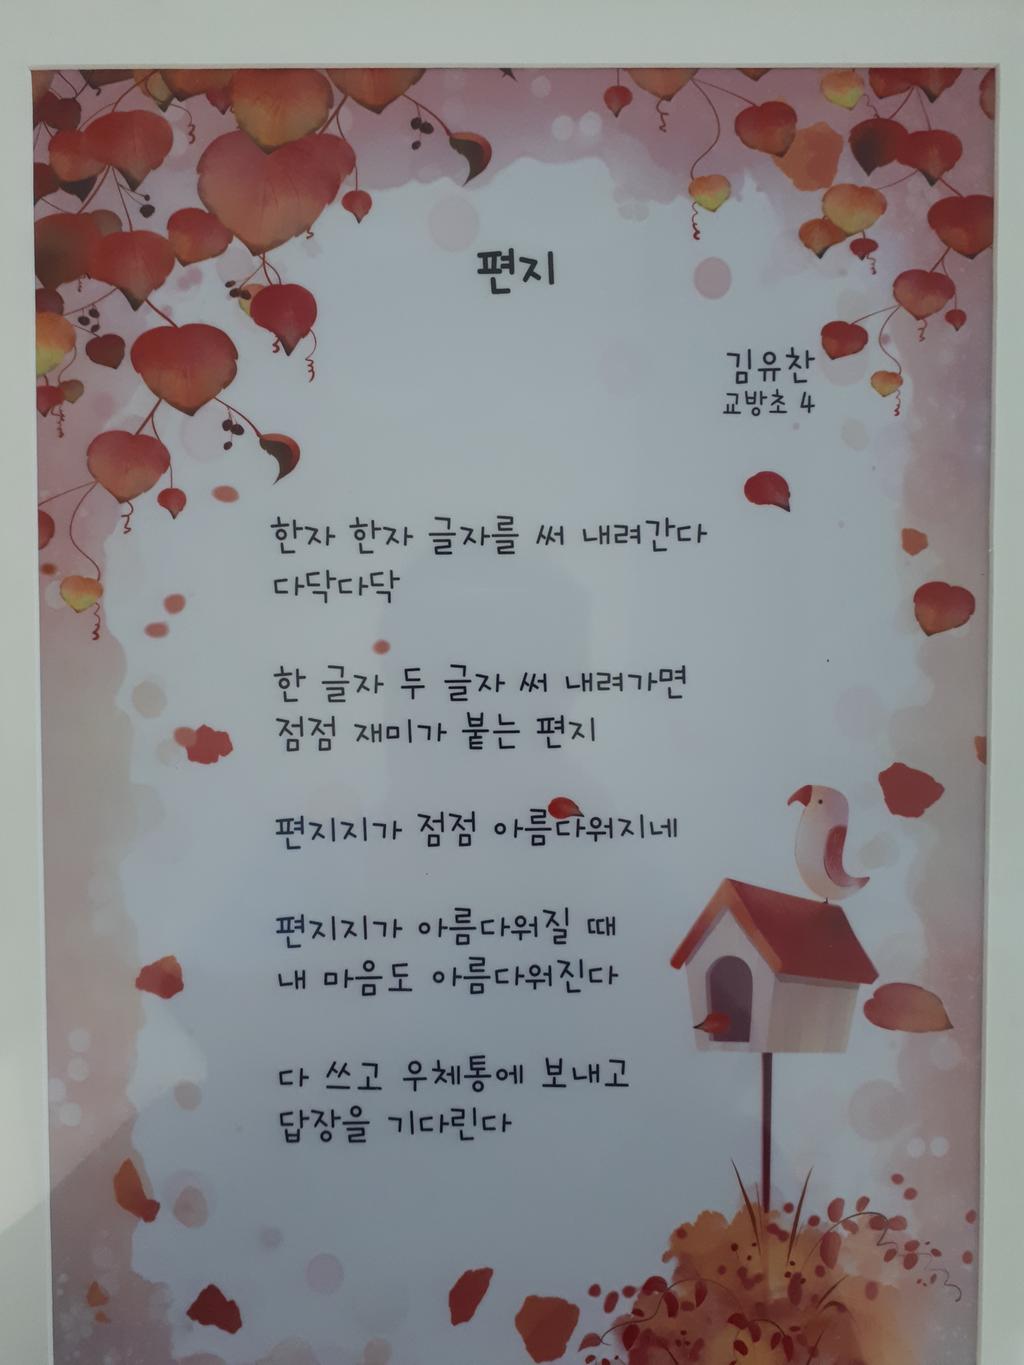 편지
김유찬
교방초 4
한자 한자 글자를 써 내려간다
다닥다닥
한 글자 두 글자 써 내려가면
점점 재미가 붙는 편지
편지지가 점점 아름다워지네
편지지가 아름다워질 때
내 마음도 아름다워진다
다 쓰고 우체통에 보내고
답장을 기다린다